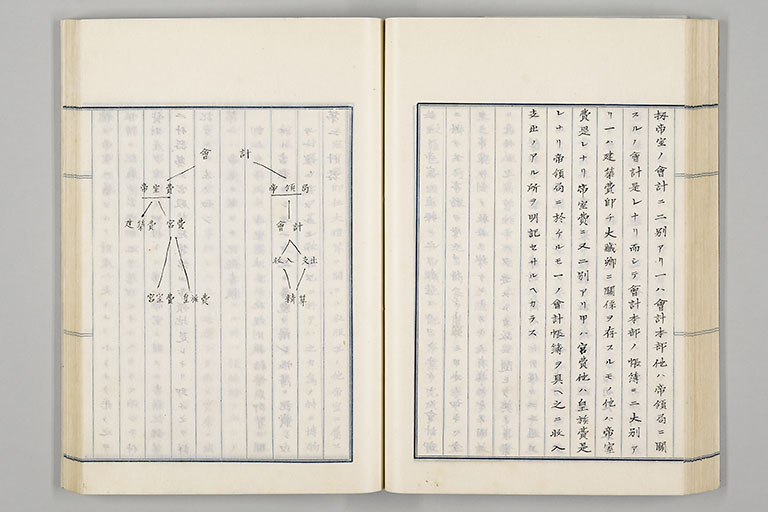 抑帝室ノ會計ニ二別アリ一ハ會計本部他ハ帝領局ニ關
スルノ會計是レナリ而シテ會計本部ノ帳簿ニ二大別ア
リ一ハ建築費即チ大藏卿ニ關係ヲ存スルモノ他ハ帝室
費是レナリ帝室費ニ又二別アリ甲ハ宮費他ハ皇族費是
レナリ帝領局ニ於ケルモ一ノ會計帳簿ヲ具ヘ之ニ收入
支出ノアル所ヲ明記セサルヘカラス
會計
帝領局
帝室費
會計
建築費
宮費
收入
支出
精算
宮室費
皇族費